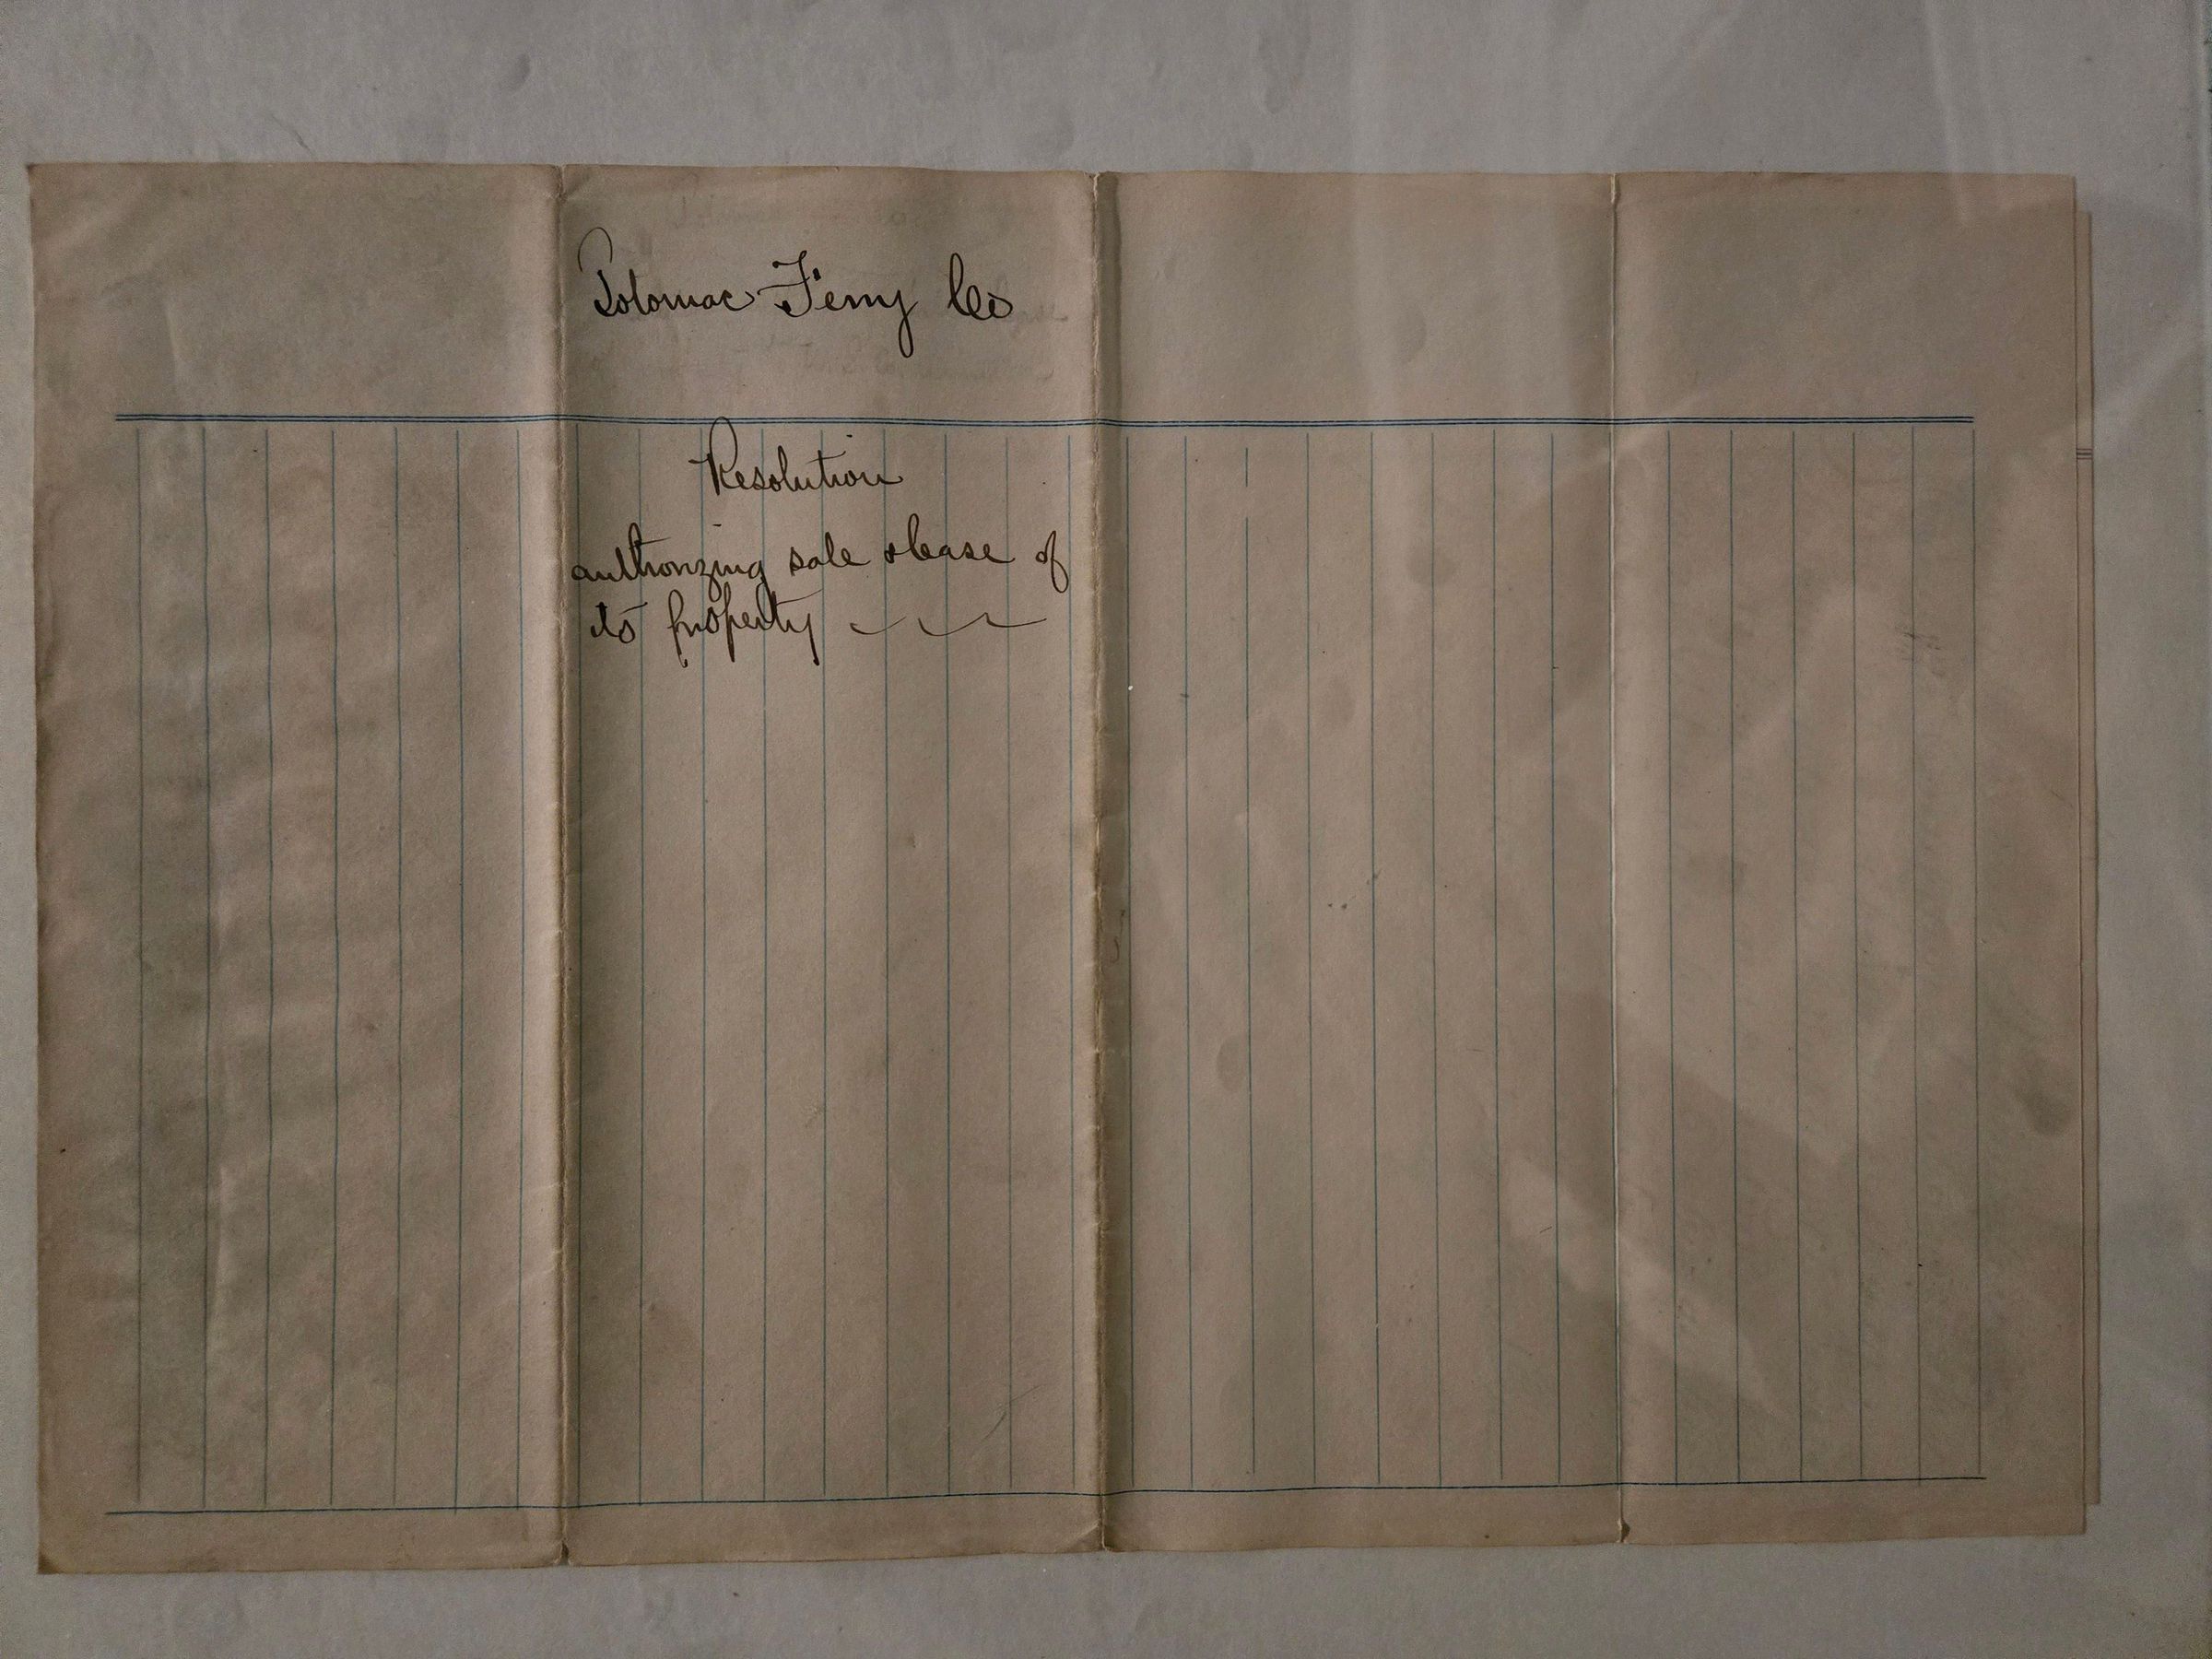 Potomac Ferry Co
Resolution
authorizing sale & lease of
its property